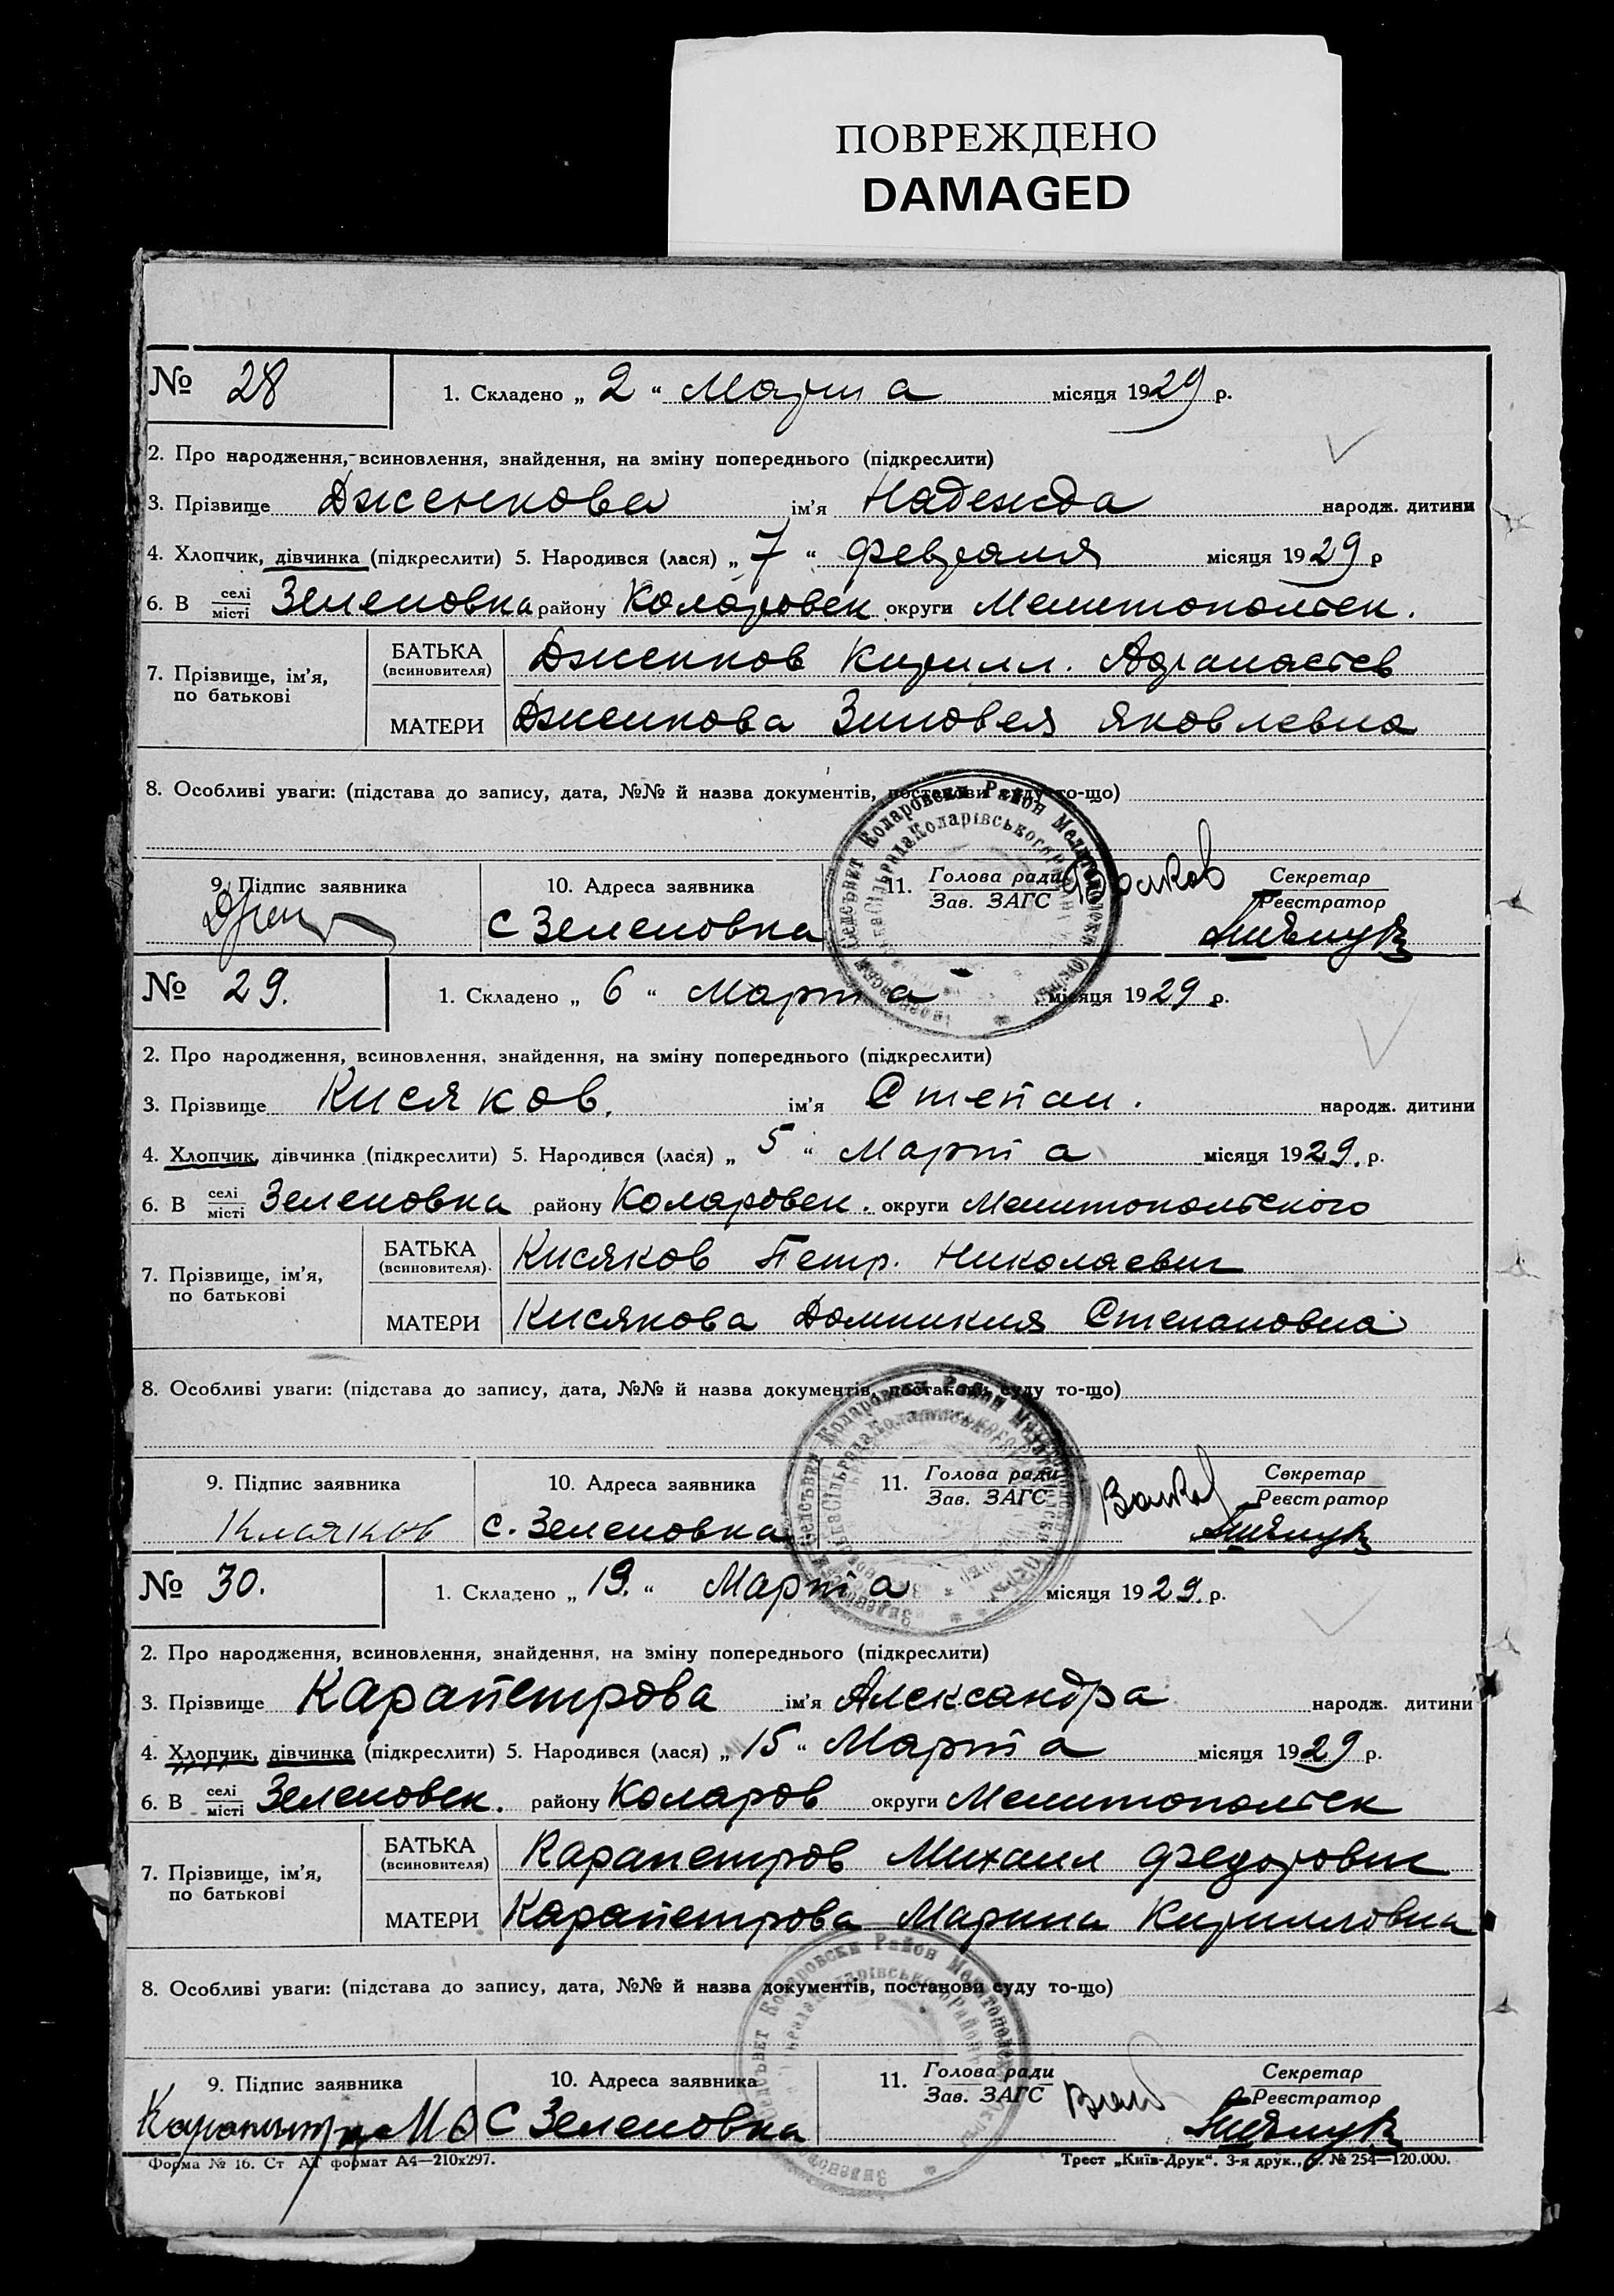 ПОВРЕЖДЕНО
DAMAGED
№ 28
1. Складено „ 2 “ Марта місяця 1929 р.
2. Про народження, всиновлення, знайдення, на зміну попереднього (підкреслити)
3. Прізвище Дженкова ім'я Надежда народж. дитини
4. Хлопчик, дівчинка (підкреслити) 5. Народився (лася) „ 7 “ февраля місяця 1929 р
6. В селі місті Зеленовка району Коларовск округи Мелитопольск.
7. Прізвище, ім'я, по батькові
БАТЬКА (всиновителя) Дженков Кирилл.
МАТЕРИ Дженкова Зиновея Яковлевна
8. Особливі уваги: (підстава до запису, дата, №№ й назва документів, постанови суду то-що)
9. Підпис заявника
10. Адреса заявника
11. Голова ради Зав. ЗАГС
Секретар Реєстратор
С Зеленовка
№ 29.
1. Складено „ 6 “ Марта місяця 1929 р.
2. Про народження, всиновлення, знайдення, на зміну попереднього (підкреслити)
3. Прізвище Кисяков. ім'я Степан. народж. дитини
4. Хлопчик, дівчинка (підкреслити) 5. Народився (лася) „ 5 “ Марта місяця 1929. р.
6. В селі місті Зеленовка району Коларовск. округи Мелитопольского
7. Прізвище, ім'я, по батькові
БАТЬКА (всиновителя). Кисяков Петр. Николаевич
МАТЕРИ Кисякова Домникия Степановна
8. Особливі уваги: (підстава до запису, дата, №№ й назва документів, постанови суду то-що)
9. Підпис заявника
10. Адреса заявника
11. Голова ради Зав. ЗАГС
Секретар Реєстратор
с. Зеленовка
Волков
№ 30.
1. Складено „ 19. “ Марта місяця 1929. р.
2. Про народження, всиновлення, знайдення, на зміну попереднього (підкреслити)
3. Прізвище Карапетрова ім'я Александра народж. дитини
4. Хлопчик, дівчинка (підкреслити) 5. Народився (лася) „ 15 “ Марта місяця 1929 р.
6. В селі місті Зеленовск. району Коларов округи Мелитопольск
7. Прізвище, ім'я, по батькові
БАТЬКА (всиновителя) Карапетров Михаил Федорович
МАТЕРИ Карапетрова Марина Кирилловна
8. Особливі уваги: (підстава до запису, дата, №№ й назва документів, постанови суду то-що)
9. Підпис заявника
10. Адреса заявника
11. Голова ради Зав. ЗАГС
Секретар Реєстратор
С Зеленовка
Форма № 16. Ст АТ формат А4—210х297.
Трест „Київ-Друк“. 3-я друк., № 254—120.000.